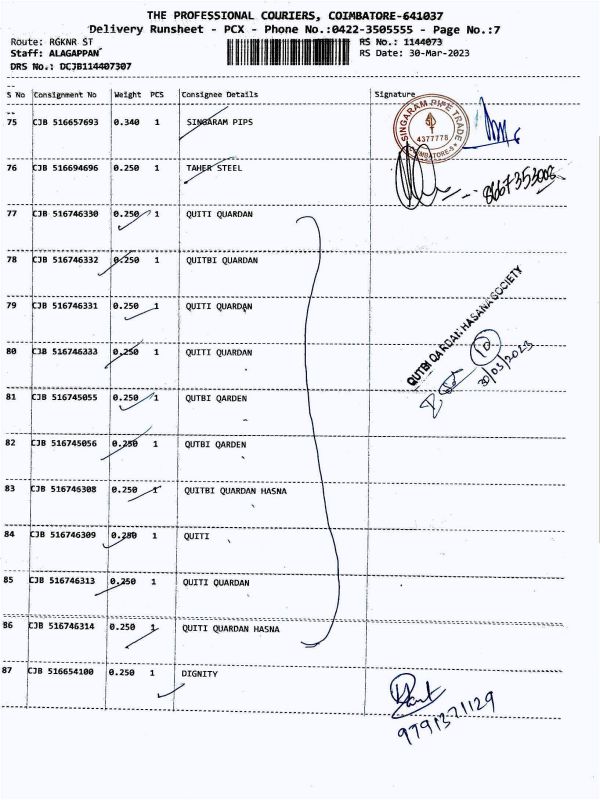 THE PROFESSIONAL COURIERS, COIMBATORE-641037
Delivery Runsheet - PCX - Phone No.:0422-3505555 - Page No.:7
Route: RGKNR ST RS No.: 1144073
Staff: ALAGAPPAN RS Date: 30-Mar-2023
DRS No.: DCJB114407307
S No Consignment No Weight PCS Consignee Details Signature
75 CJB 516657693 0.340 1 SINGARAM PIPS
SINGARAM PIPE TRADE
4377778
COIMBATORE-9
76 CJB 516694696 0.250 1 TAHER STEEL
77 CJB 516746330 0.250 1 QUITI QUARDAN
78 CJB 516746332 0.250 1 QUITBI QUARDAN
79 CJB 516746331 0.250 1 QUITI QUARDAN
QUTBI QARDAN HASANA SOCIETY
80 CJB 516746333 0.250 1 QUITI QUARDAN
10
30/03/2023
81 CJB 516745055 0.250 1 QUTBI QARDEN
82 CJB 516745056 0.250 1 QUTBI QARDEN
83 CJB 516746308 0.250 1 QUITBI QUARDAN HASNA
84 CJB 516746309 0.250 1 QUITI
85 CJB 516746313 0.250 1 QUITI QUARDAN
86 CJB 516746314 0.250 1 QUITI QUARDAN HASNA
87 CJB 516654100 0.250 1 DIGNITY
9791371129